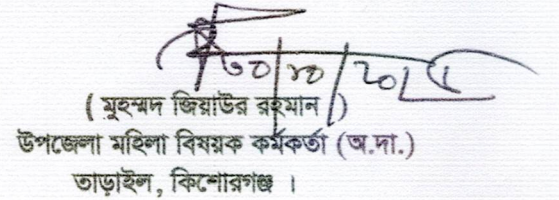 ৩০/১০/২০২৫
( মুহম্মদ জিয়াউর রহমান )
উপজেলা মহিলা বিষয়ক কর্মকর্তা (অ.দা.)
তাড়াইল, কিশোরগঞ্জ ।